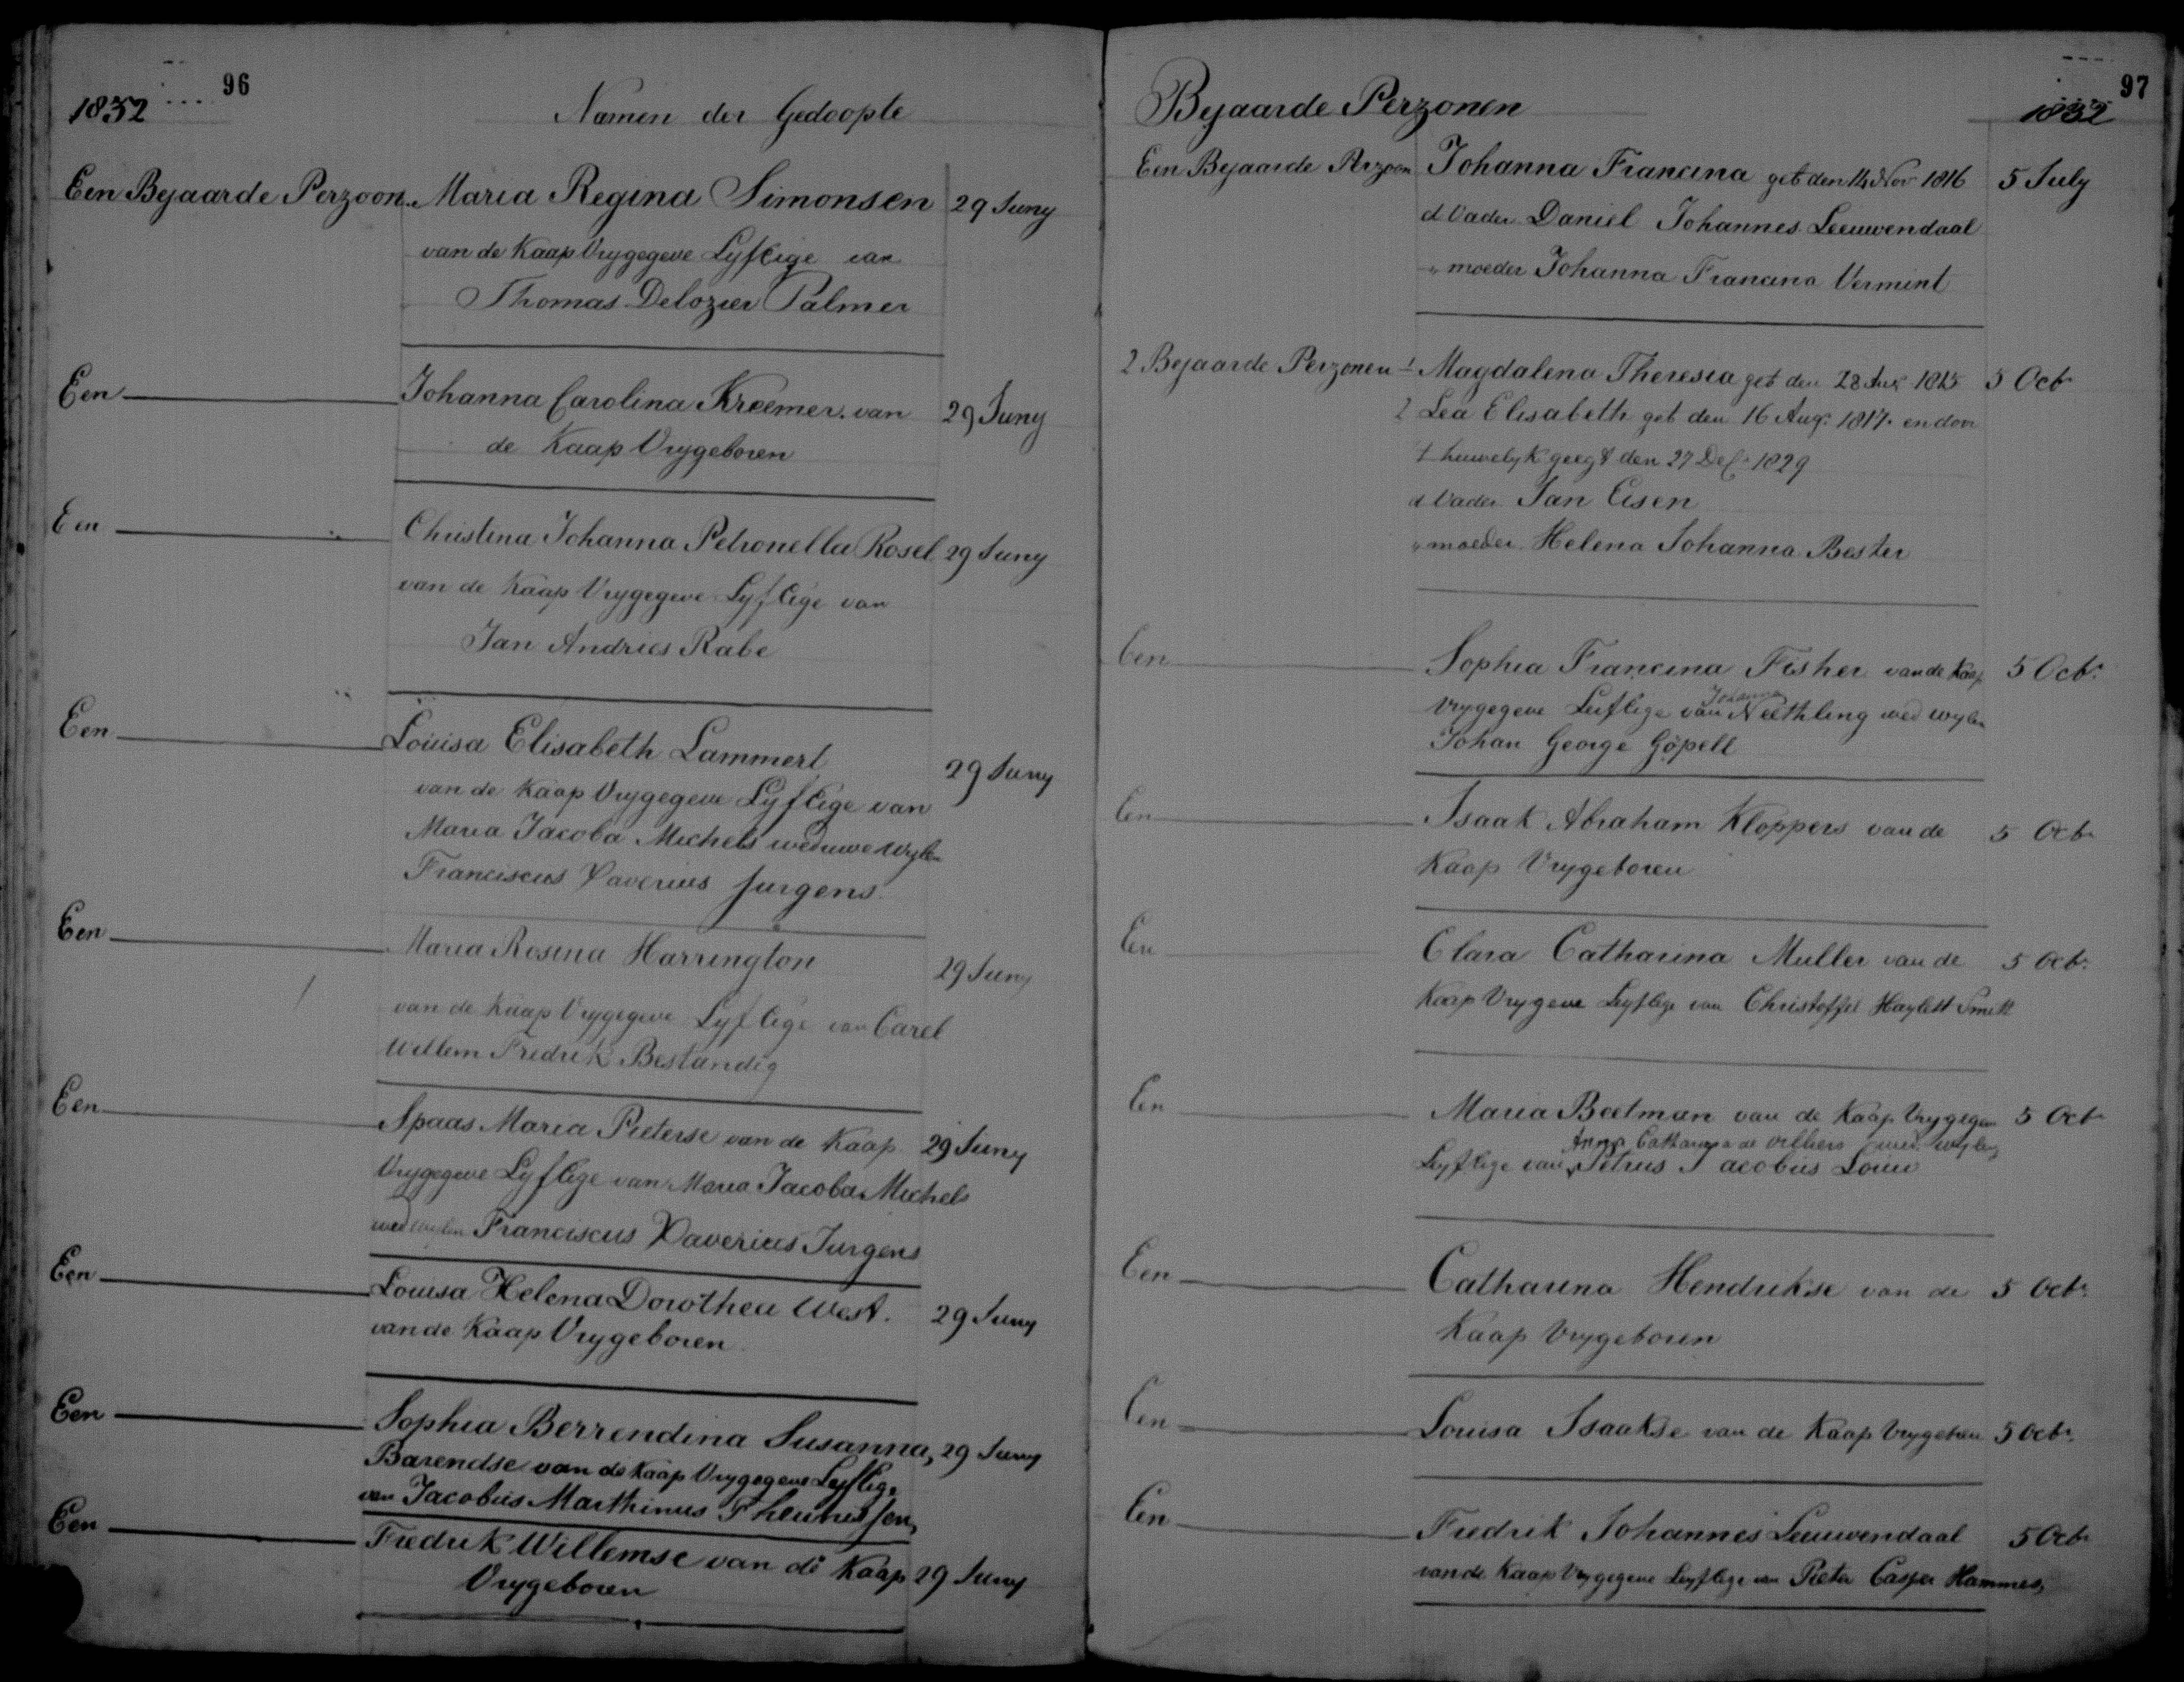 96
1832
Namen der Gedoopte
Een Bejaarde Perzoon. Maria Regina Simonsen 29 Juny
van de Kaap Vrygegeve Lyfeige van
Thomas Delozier Palmer
Een Johanna Carolina Kreemer. van 29 Juny
de Kaap Vrygeboren
Een Christina Johanna Petronella Rosel 29 Juny
van de Kaap Vrygegeve Lyfeige van
Jan Andries Rabe
Een Louisa Elisabeth Lammert 29 Juny
van de Kaap Vrygegeve Lyfeige van
Maria Jacoba Michels weduwe wylen
Franciscus Xaverius Jurgens.
Een Maria Rosina Harrington 29 Juny
van de Kaap Vrygegeve Lyfeige van Carel
Willem Fredrik Bestandig
Een Spaas Maria Pieterse van de Kaap 29 Juny
Vrygegeve Lyfeige van Maria Jacoba Michels
wed wylen Franciscus Xaverius Jurgens
Een Louisa Helena Dorothea West. 29 Juny
van de Kaap Vrygeboren
Een Sophia Berrendina Susanna, 29 Juny
Barendse van de Kaap Vrygegeve Lyflige
van Jacobus Marthinus Theunissen,
Een Fredrik Willemse van de Kaap 29 Juny
Vrygeboren
97
Bejaarde Perzonen 1832
Een Bejaarde Perzoon Johanna Francina geb den 14 Nov 1816 5 July
d Vader Daniel Johannes Leeuwendaal
" moeder Johanna Francina Vermint
2 Bejaarde Perzonen 1 Magdalena Theresia geb den 28 1815 5 Octr
2 Lea Elisabeth geb den 16 Aug. 1817. en door
t huwelyk geegt den 27 Dec 1829
d Vader Jan Eisen
" moeder Helena Johanna Bester
Een Sophia Francina Fisher van de Kaap 5 Octr
Vrygegeve Leiflige van Johanna Neethling wed wylen
Johan George Göpell
Een Isaak Abraham Kloppers van de 5 Octr
Kaap Vrygeboren
Een Clara Catharina Muller van de 5 Octr
Kaap Vrygeve Leyflige van Christoffel Haylett Smitt
Een Maria Beetman van de Kaap Vrygegeven 5 Octr
Anna Catharina de Villiers wed wylen
Leyflige van Petrus Jacobus Louw
Een Catharina Hendrikse van de 5 Octr
Kaap Vrygeboren
Een Louisa Isaakse van de Kaap Vrygeboren 5 Octr
Een Fredrik Johannes Leeuwendaal 5 Octr
van de Kaap Vrygegeve Leyflige van Pieter Casper Hammes,